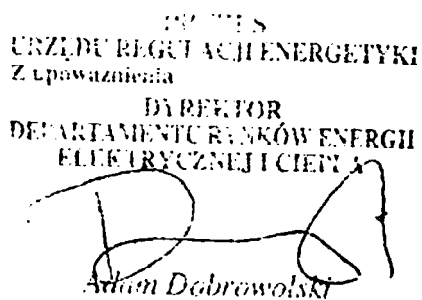 PREZES
URZĘDU REGULACJI ENERGETYKI
Z upoważnienia
DYREKTOR
DEPARTAMENTU RYNKÓW ENERGII
ELEKTRYCZNEJ I CIEPŁA
Adam Dobrowolski